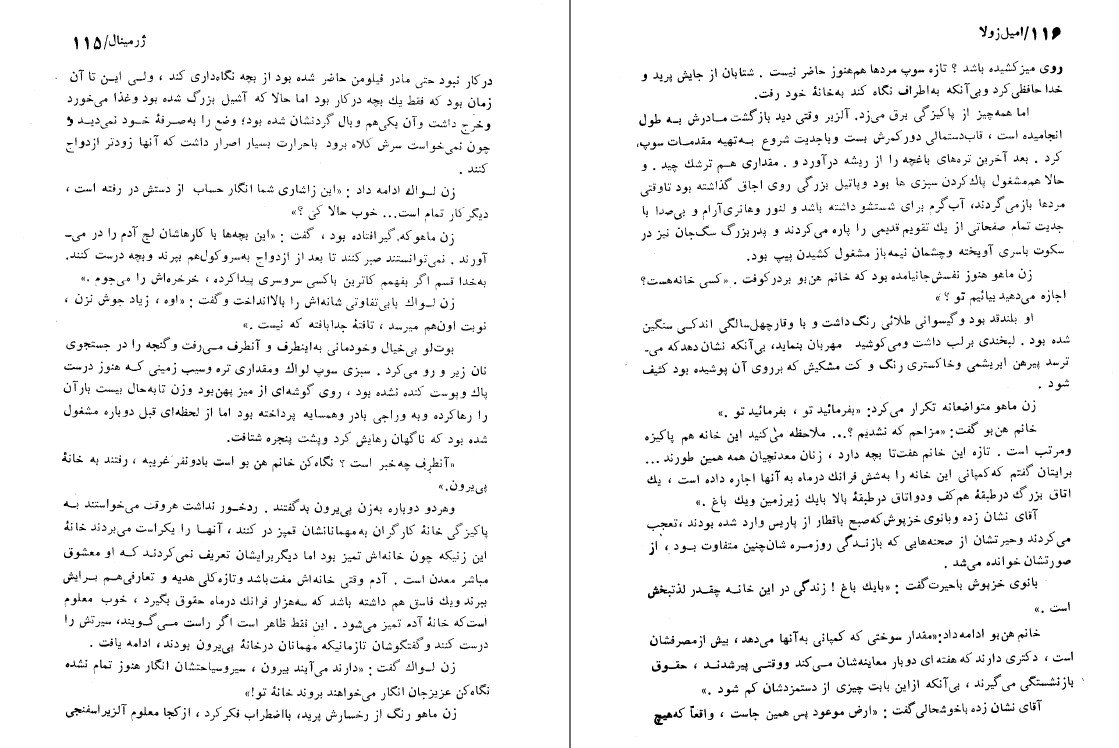 ژرمینال/۱۱۵
درکار نبود حتی مادر فیلومن حاضر شده بود از بچه نگاه‌داری کند ، ولی این تا آن
زمان بود که فقط یك بچه درکار بود اما حالا که آشیل بزرگ شده بود وغذا می‌خورد
وخرج داشت وآن یکی‌هم وبال گردنشان شده بود؛ وضع را به‌صرفهٔ خود نمی‌دید و
چون نمی‌خواست سرش کلاه برود باحرارت بسیار اصرار داشت که آنها زودتر ازدواج
کنند .
زن لـواك ادامه داد : «این زاشاری شما انگار حساب از دستش در رفته است ،
دیگر کار تمام است... خوب حالا کی ؟»
زن ماهوکه گیرافتاده بود ، گفت : «این بچه‌ها با کارهاشان لج آدم را در می‌ـ
آورند . نمی‌توانستند صبر کنند تا بعد از ازدواج به‌سروکول‌هم بپرند وبچه درست کنند.
به‌خدا قسم اگر بفهمم کاترین باکسی سروسری پیداکرده ، خرخره‌اش را می‌جوم .»
زن لـواك بابی‌تفاوتی شانه‌اش را بالاانداخت وگفت : «اوه ، زیاد جوش نزن ،
نوبت اون‌هم میرسد ، تافتهٔ جدابافته که نیست .»
بوت‌لو بی‌خیال وخودمانی به‌اینطرف و آنطرف مـی‌رفت وگنجه را در جستجوی
نان زیر و رو می‌کرد . سبزی سوپ لواك ومقداری تره وسیب زمینی کـه هنوز درست
پاك وپوست کنده نشده بود ، روی گوشه‌ای از میز پهن‌بود وزن تابه‌حال بیست بارآن
را رهاکرده وبه وراجی بادر وهمسایه پرداخته بود اما از لحظه‌ای قبل دوباره مشغول
شده بود که ناگهان رهایش کرد وپشت پنجره شتافت.
«آنطرف چه‌خبر است ؟ نگاه‌کن خانم هن بو است بادونفر غریبه ، رفتند به خانهٔ
پی‌یرون.»
وهردو دوباره به‌زن پی‌یرون بدگفتند . ردخور نداشت هروقت می‌خواستند بـه
پاکیزگی خانهٔ کارگران به‌مهمانانشان تمیز در کنند ، آنهـا را یکراست می‌بردند خانهٔ
این زنیکه چون خانه‌اش تمیز بود اما دیگربرایشان تعریف نمی‌کردنـد کـه او معشوق
مباشر معدن است . آدم وقتی خانه‌اش مفت‌باشد وتازه‌کلی هدیه و تعارفی‌هـم بـرایش
ببرند ویك فاسق هم داشته باشد که سه‌هزار فرانك درماه حقوق بگیرد ، خوب معلوم
است‌که خانهٔ آدم تمیز می‌شود . این فقط ظاهر است اگر راست مـی‌گـویند، سیرتش را
درست کنند وگفتگوشان تازمانیکه مهمانان درخانهٔ پی‌یرون بودند ، ادامه یافت .
زن لـواك گفت : «دارند می‌آیند بیرون ، سیروسیاحتشان انگار هنوز تمام نشده
نگاه‌کن عزیزجان انگار می‌خواهند بروند خانهٔ تو!»
زن ماهو رنگ از رخسارش پرید، بااضطراب فکرکرد ، ازکجا معلوم آلزیراسفنجی
۱۱۶/امیل‌زولا
روی میزکشیده باشد ؟ تازه سوپ مردها هم‌هنوز حاضر نیست . شتابان از جایش پرید و
خداحافظی‌کرد وبی‌آنکه به‌اطراف نگاه کند به‌خانهٔ خود رفت.
اما همه‌چیز از پاکیزگی برق می‌زد. آلزیر وقتی دید بازگشت مـادرش بـه طول
انجامیده است ، قاب‌دستمالی دورکمرش بست وباجدیت شروع بـه‌تهیه مقدمات سوپ،
کرد . بعد آخرین تره‌های باغچه را از ریشه درآورد و . مقداری هـم ترشك چید . و
حالا هم‌مشغول پاك‌کردن سبزی ها بود وپاتیل بزرگی روی اجاق گذاشته بود تاوقتی
مردها بازمی‌گردند، آب‌گرم برای شستشو داشته باشد و لنور وهانری‌آرام و بی‌صدا با
جدیت تمام صفحاتی از یك تقویم قدیمی را پاره می‌کردند و پدربزرگ سگ‌جان نیز در
سکوت باسری آویخته وچشمان نیمه‌باز مشغول کشیدن پیپ بود.
زن ماهو هنوز نفسش‌جانیامده بود که خانم هن‌بو بردرکوفت . «کسی خانه‌هست؟
اجازه می‌دهید بیائیم تو ؟ »
او بلندقد بود وگیسوانی طلائی رنگ داشت و با وقارچهل‌سالگی اندکـی سنگین
شده بود . لبخندی برلب داشت ومی‌کوشید مهربان بنماید، بی‌آنکه نشان دهدکه می‌ـ
ترسد پیرهن ابریشمی وخاکستری رنگ و کت مشکیش که برروی آن پوشیده بود کثیف
شود .
زن ماهو متواضعانه تکرار می‌کرد: «بفرمائید تو ، بفرمائید تو .»
خانم هن‌بو گفت: «مزاحم که نشدیم ؟... ملاحظه می‌کنید این خانه هم پاکیزه
ومرتب است . تازه این خانم هفت‌تا بچه دارد ، زنان معدنچیان همه همین طورند ...
برایتان گفتم که‌کمپانی این خانه را به‌شش فرانك درماه به آنها اجاره داده است ، یك
اتاق بزرگ درطبقهٔ هم‌کف ودواتاق درطبقهٔ بالا بایك زیرزمین ویك باغ .»
آقای نشان زده وبانوی خزپوش‌که‌صبح باقطار از پاریس وارد شده بودند ،تعجب
می‌کردند وحیرتشان از صحنه‌هایی که بازندگی روزمـره شان‌چنین متفاوت بـود ، از
صورتشان خوانده می‌شد .
بانوی خزپوش باحیرت‌گفت : «بایك باغ ! زندگی در این خانـه چقـدر لذتبخش
است .»
خانم هن‌بو ادامه‌داد:«مقدار سوختی که کمپانی به‌آنها می‌دهد ، بیش ازمصرفشان
است ، دکتری دارند که هفته ای دوبار معاینه‌شان مـی‌کند ووقتـی پیرشدنـد ، حقـوق
بازنشستگی می‌گیرند ، بی‌آنکه ازاین بابت چیزی از دستمزدشان کم شود .»
آقای نشان زده باخوشحالی‌گفت : «ارض موعود پس همین جاست ، واقعاً که‌هیچ